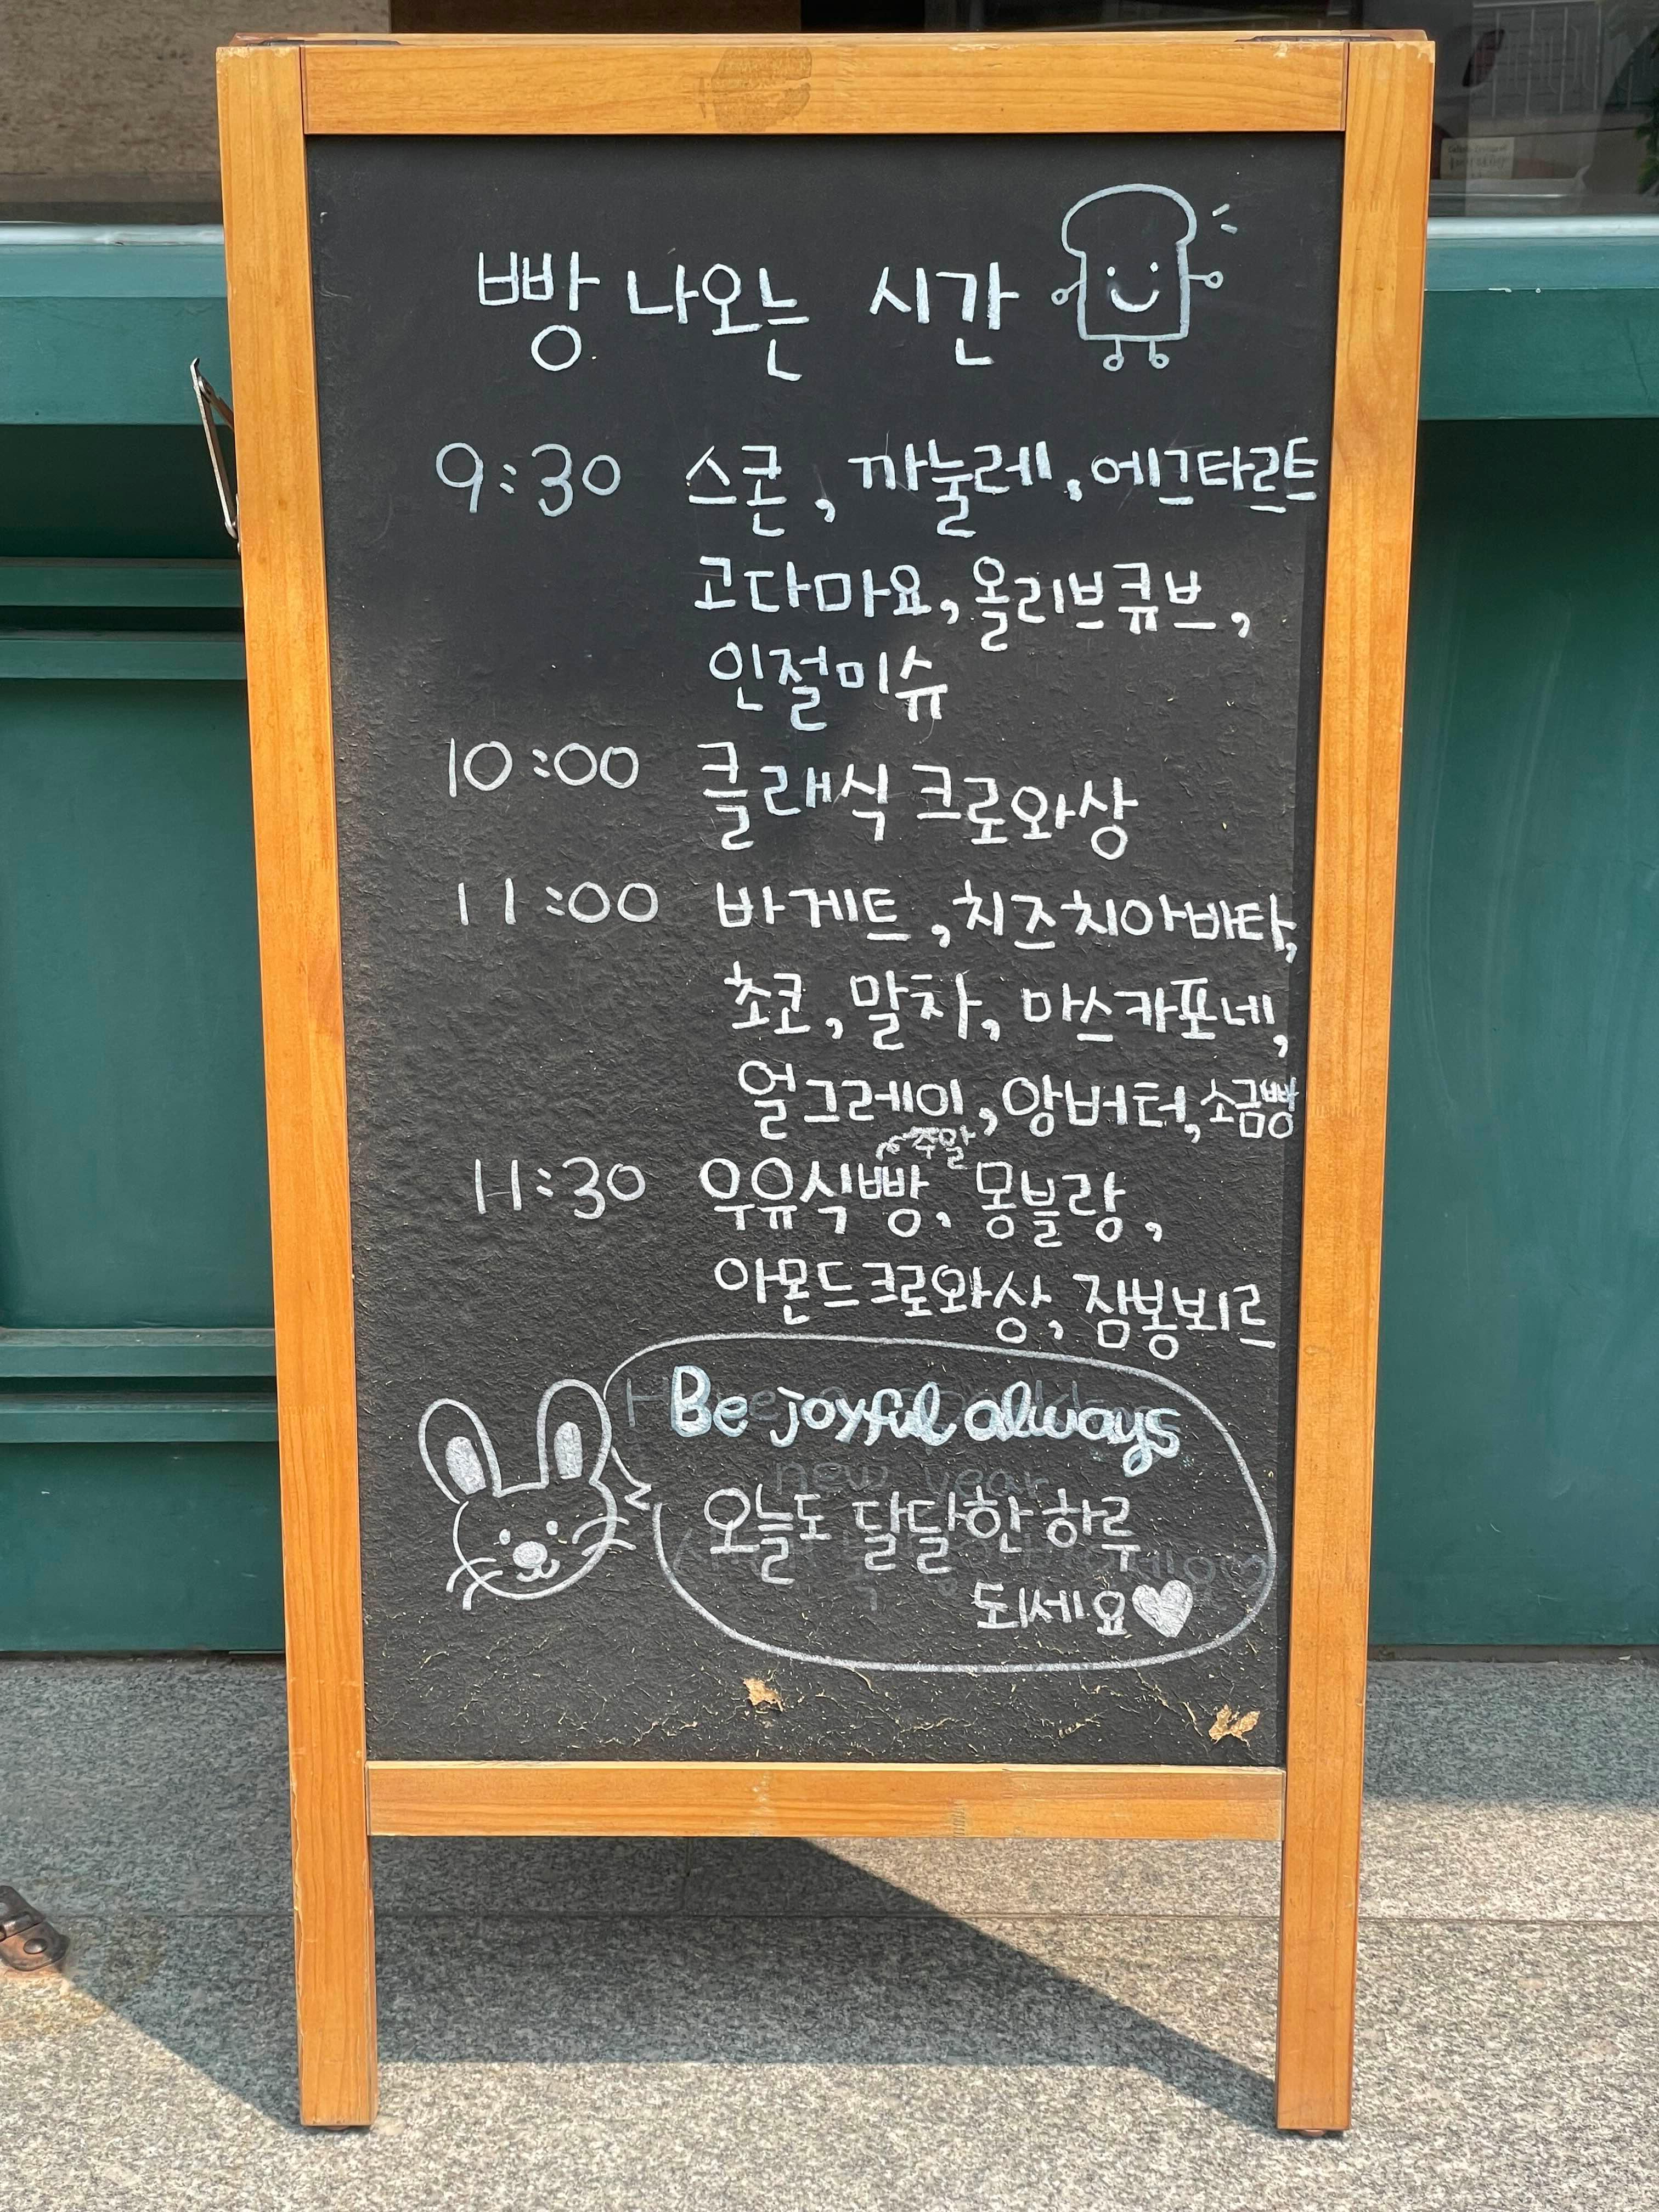 빵 나오는 시간
9:30 스콘, 까눌레, 에그타르트
고다마요, 올리브큐브,
인절미슈
10:00 클래식 크로와상
11:00 바게트, 치즈치아바타,
초코, 말차, 마스카포네,
얼그레이, 앙버터, 소금빵
주말
11:30 우유식빵, 몽블랑,
아몬드크로와상, 잠봉뵈르
Be joyful always
new year
오늘도 달달한 하루
되세요♥